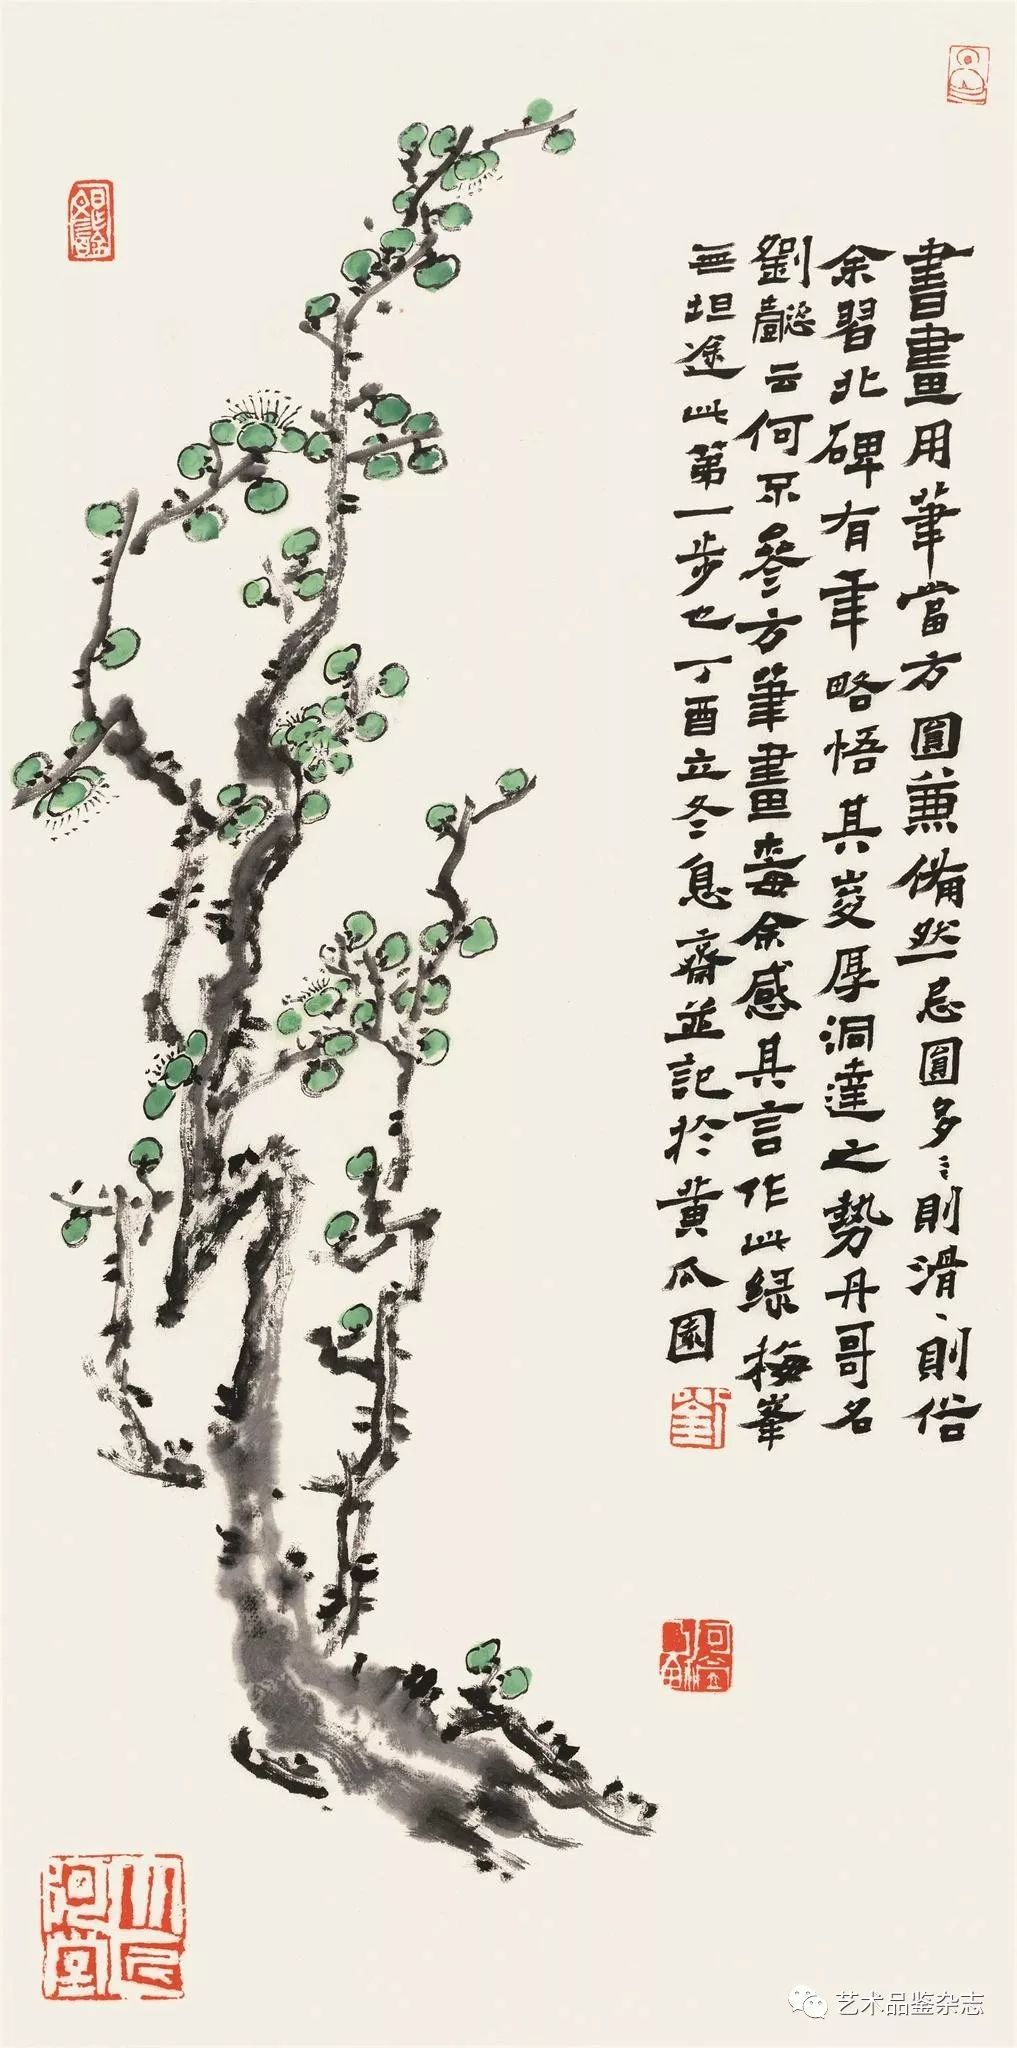 書畫用筆當方圓兼備然忌圓多〻則滑〻則俗
余習北碑有年略悟其峻厚洞達之勢丹哥名
劉懿云何不參方筆畫梅余感其言作此绿梅峯
無坦途此第一步也丁酉立冬息齋並記於黄瓜園
劉
大石阿堂
艺术品鉴杂志